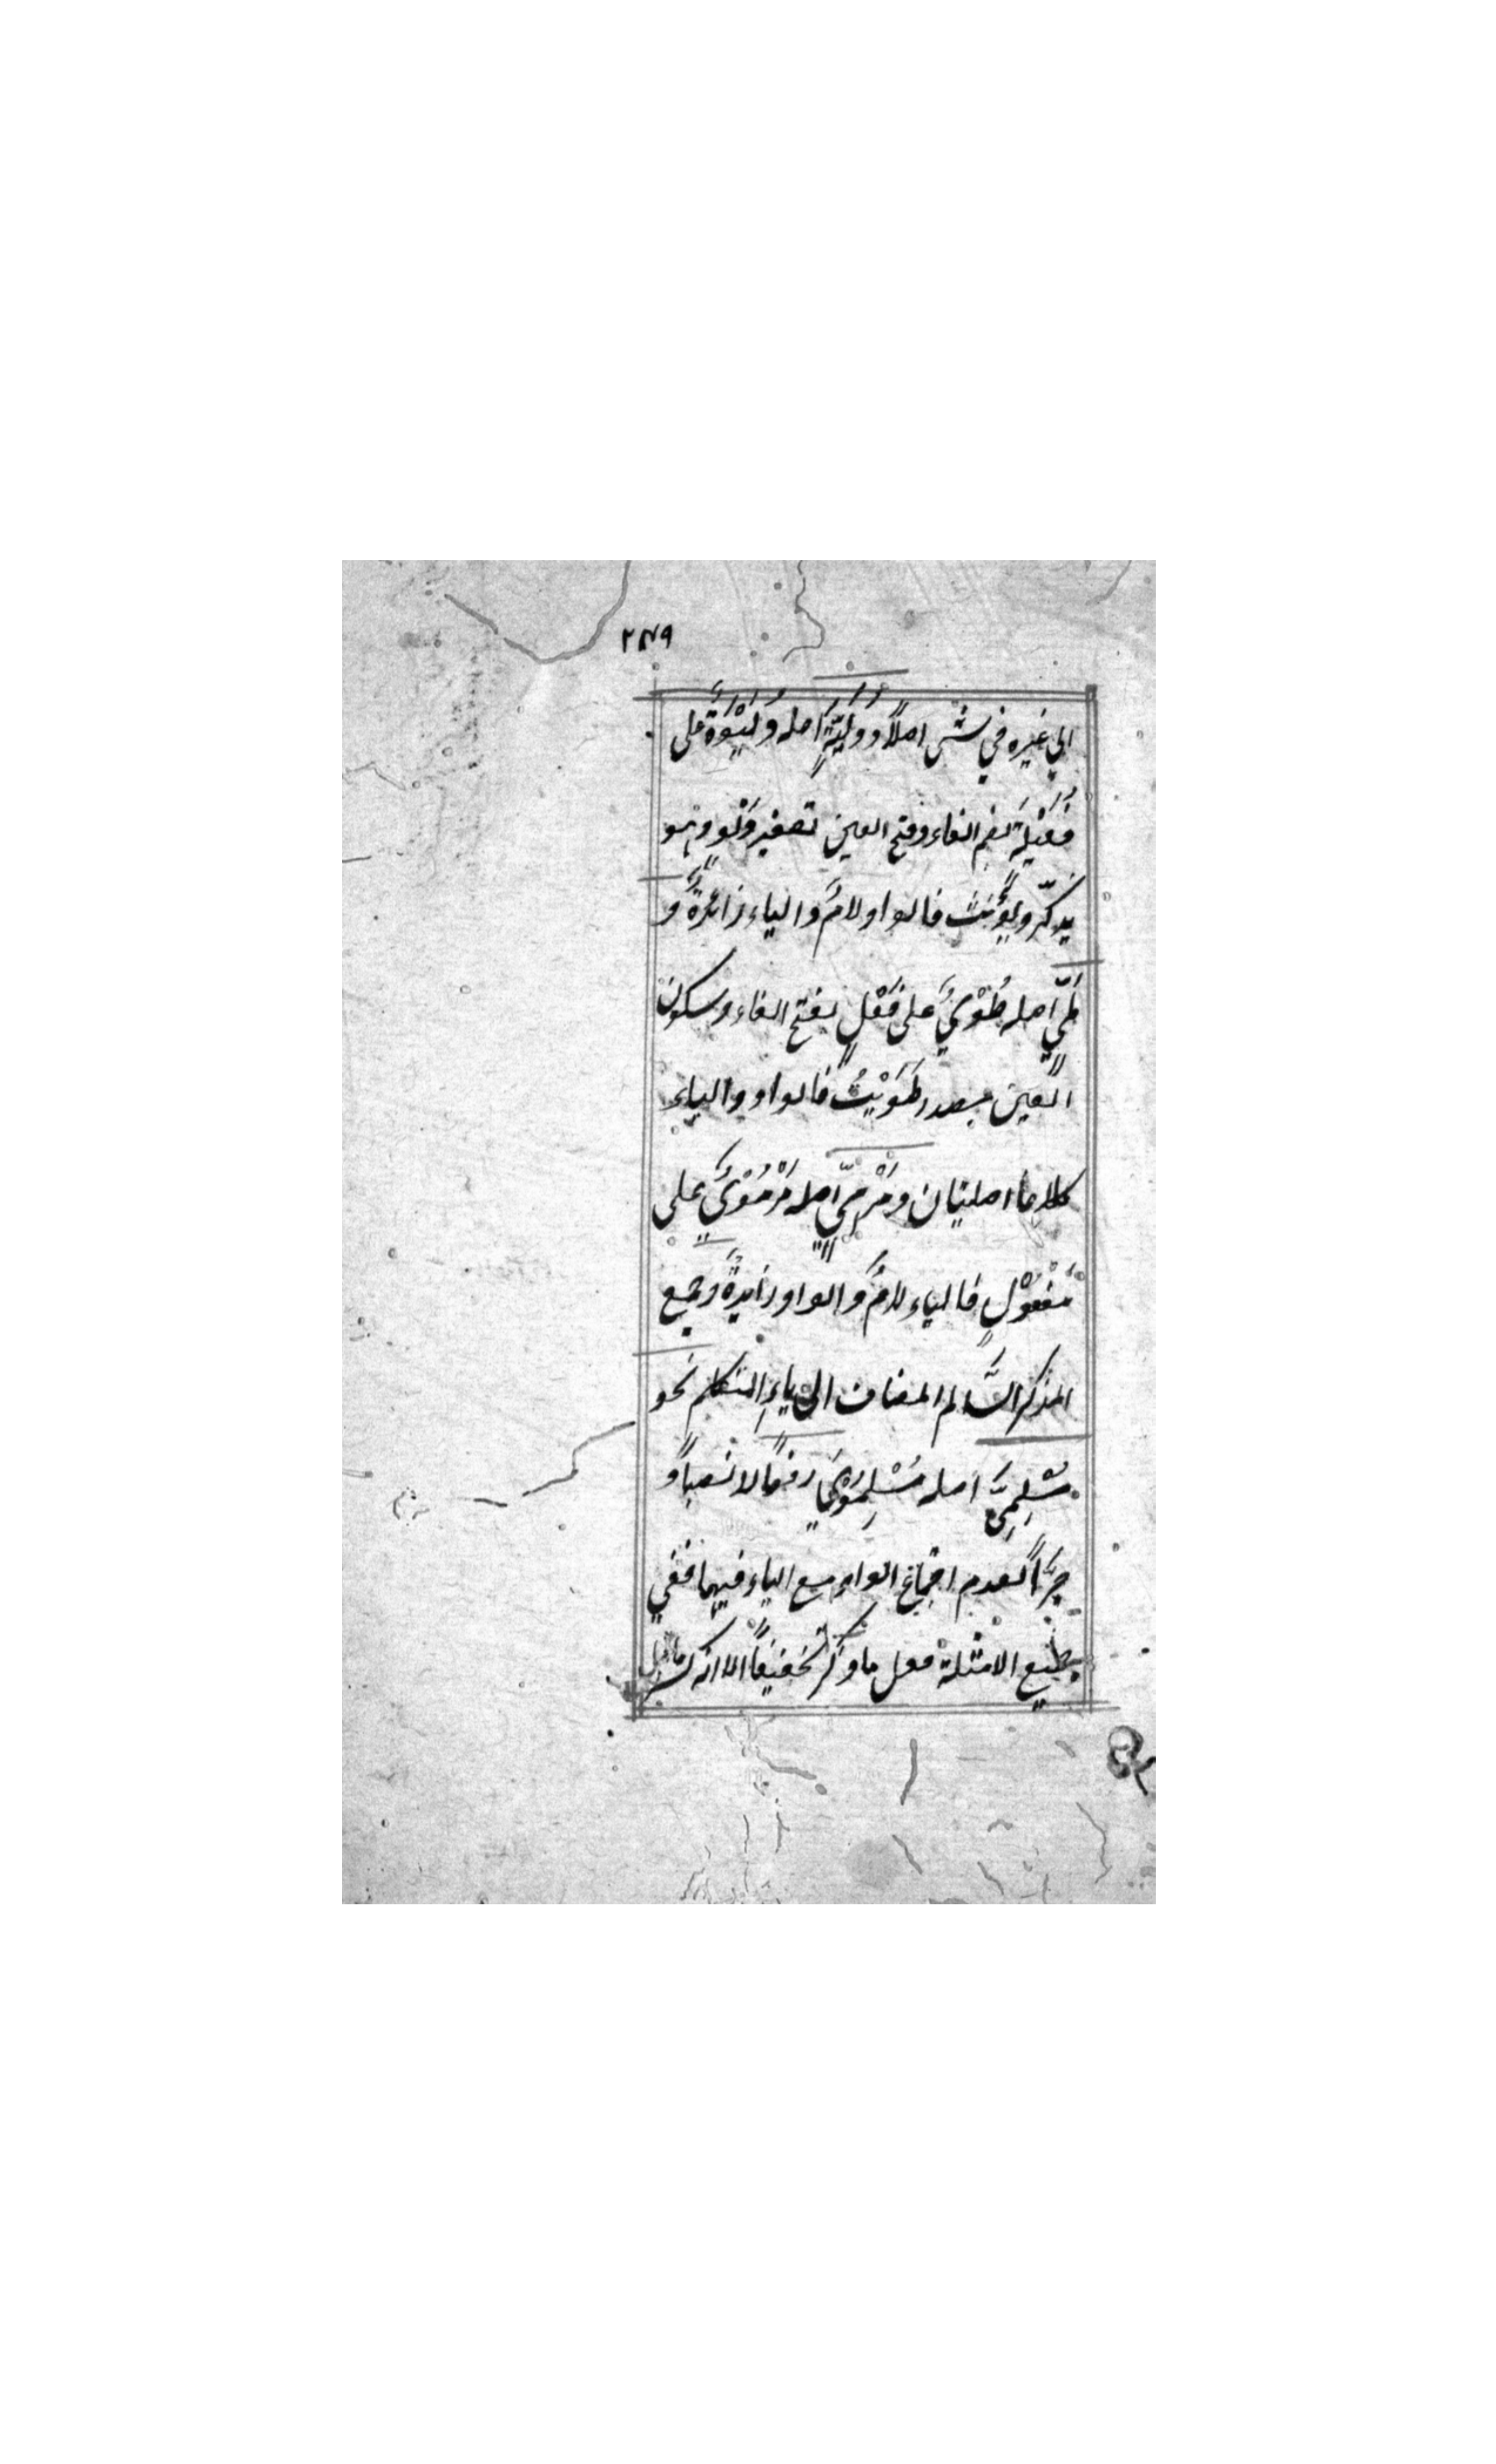 ٢٨٩
الي غيره في شئ اصلاً ودُلَيَّةٍ اصله دُلَيْوَةٌ على
فُعَيْلَةَ بضم الفاء وفتح العين تصغير دَلْوٍ وهو
يذكّر ويُؤَنَّثُ فالواو لامٌ والياء زائدةٌ و
طَيٍّ اصله طَوْيٌ على فَعْلٍ بفتح الفاء وسكون
العين مصدر طَوَيْتُ فالواو والياء
كلاهما اصليتان ومَرْمِيٍّ اصله مَرْمُوْيٌ على
مَفْعُوْلٍ فالياء لامٌ والواو زايدةٌ وجمع
المذكر السَّالم المضاف الى ياءِ المتكلم نحو
مُسْلِمِيَّ اصله مُسْلِمُوْيَ رفعًا لا نصبًا و
جرًّا لعدم اجتماع الواو مع الياء فيهما ففي
جميع الامثلة فعل ما ذُكر تخفيفًا الا انه كسر ما قبل